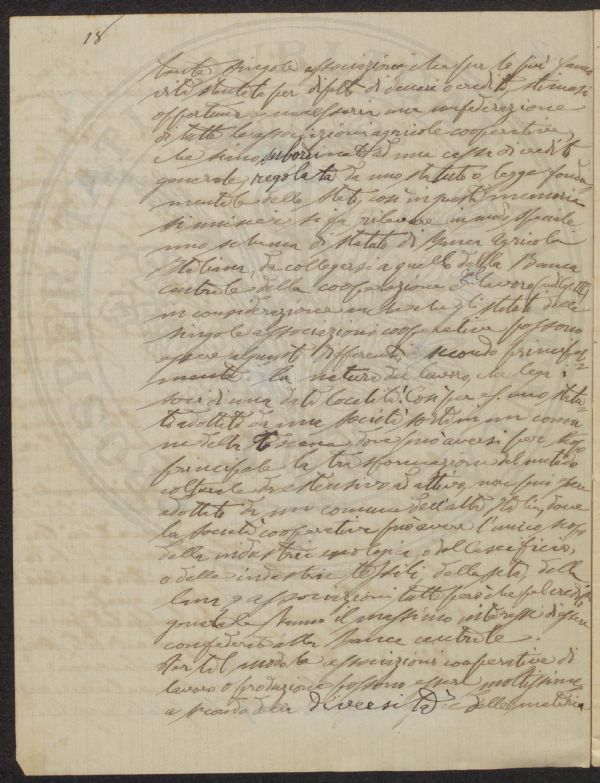 18
tante singole associazioni che per le più fanno
vita stentata per difetto di denari o credito, stimasi
opportuna e necessaria una confederazione
di tutte le associazioni agricole cooperative,
che siano subordinate ad una cassa di credito
generale, regolata da uno statuto o legge fonda
mentale dello Stato, così in questa memoria
si unisce e si fa rilevare in modo speciale
uno schema di Statuto di Banca Agricola
Italiana, da collegarsi a quello della Banca
centrale della cooperazione e lavoro
in considerazione anche che gli statuti delle
singole associazioni cooperative possono
essere alquanto differenti, secondo principal
mente la natura del lavoro, che lega i
soci di una data località. Così per es. uno statu
to adottato da una società sorta in un comu
ne della Toscana dove può aversi per scopo
principale la trasformazione del metodo
colturale da estensivo ad attivo, non può essere
adottato da un comune dell'alta Italia, dove
la società cooperativa può avere l'unico scopo
della industria enologica, o del Caseificio,
o delle industrie tessili della seta, della
lana, associazioni tutte però che pel credito
generale hanno il massimo interesse di essere
confederate alla Banca centrale.
Per tal modo le associazioni cooperative di
lavoro o produzione possono essere moltissime
a seconda della diversità delle materie